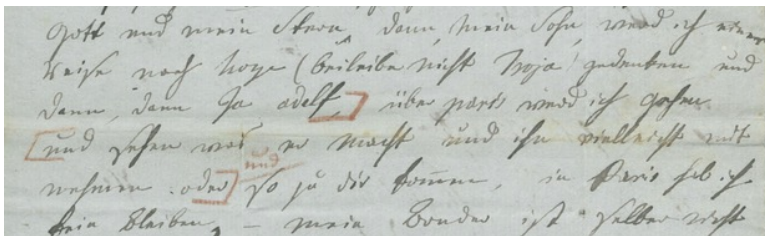 Gott und mein Stern, dann, mein Sohn, werd ich einer
Reise nach Hoya (beileibe nicht Troja) gedenken und
dann, dann Ja adolf] über paris werd ich gehen
[und sehen was er macht und ihn vielleicht mit
nehmen oder] und so zu dir kommen, in Paris hab ich
kein Bleiben, – mein Bruder ist selber nicht